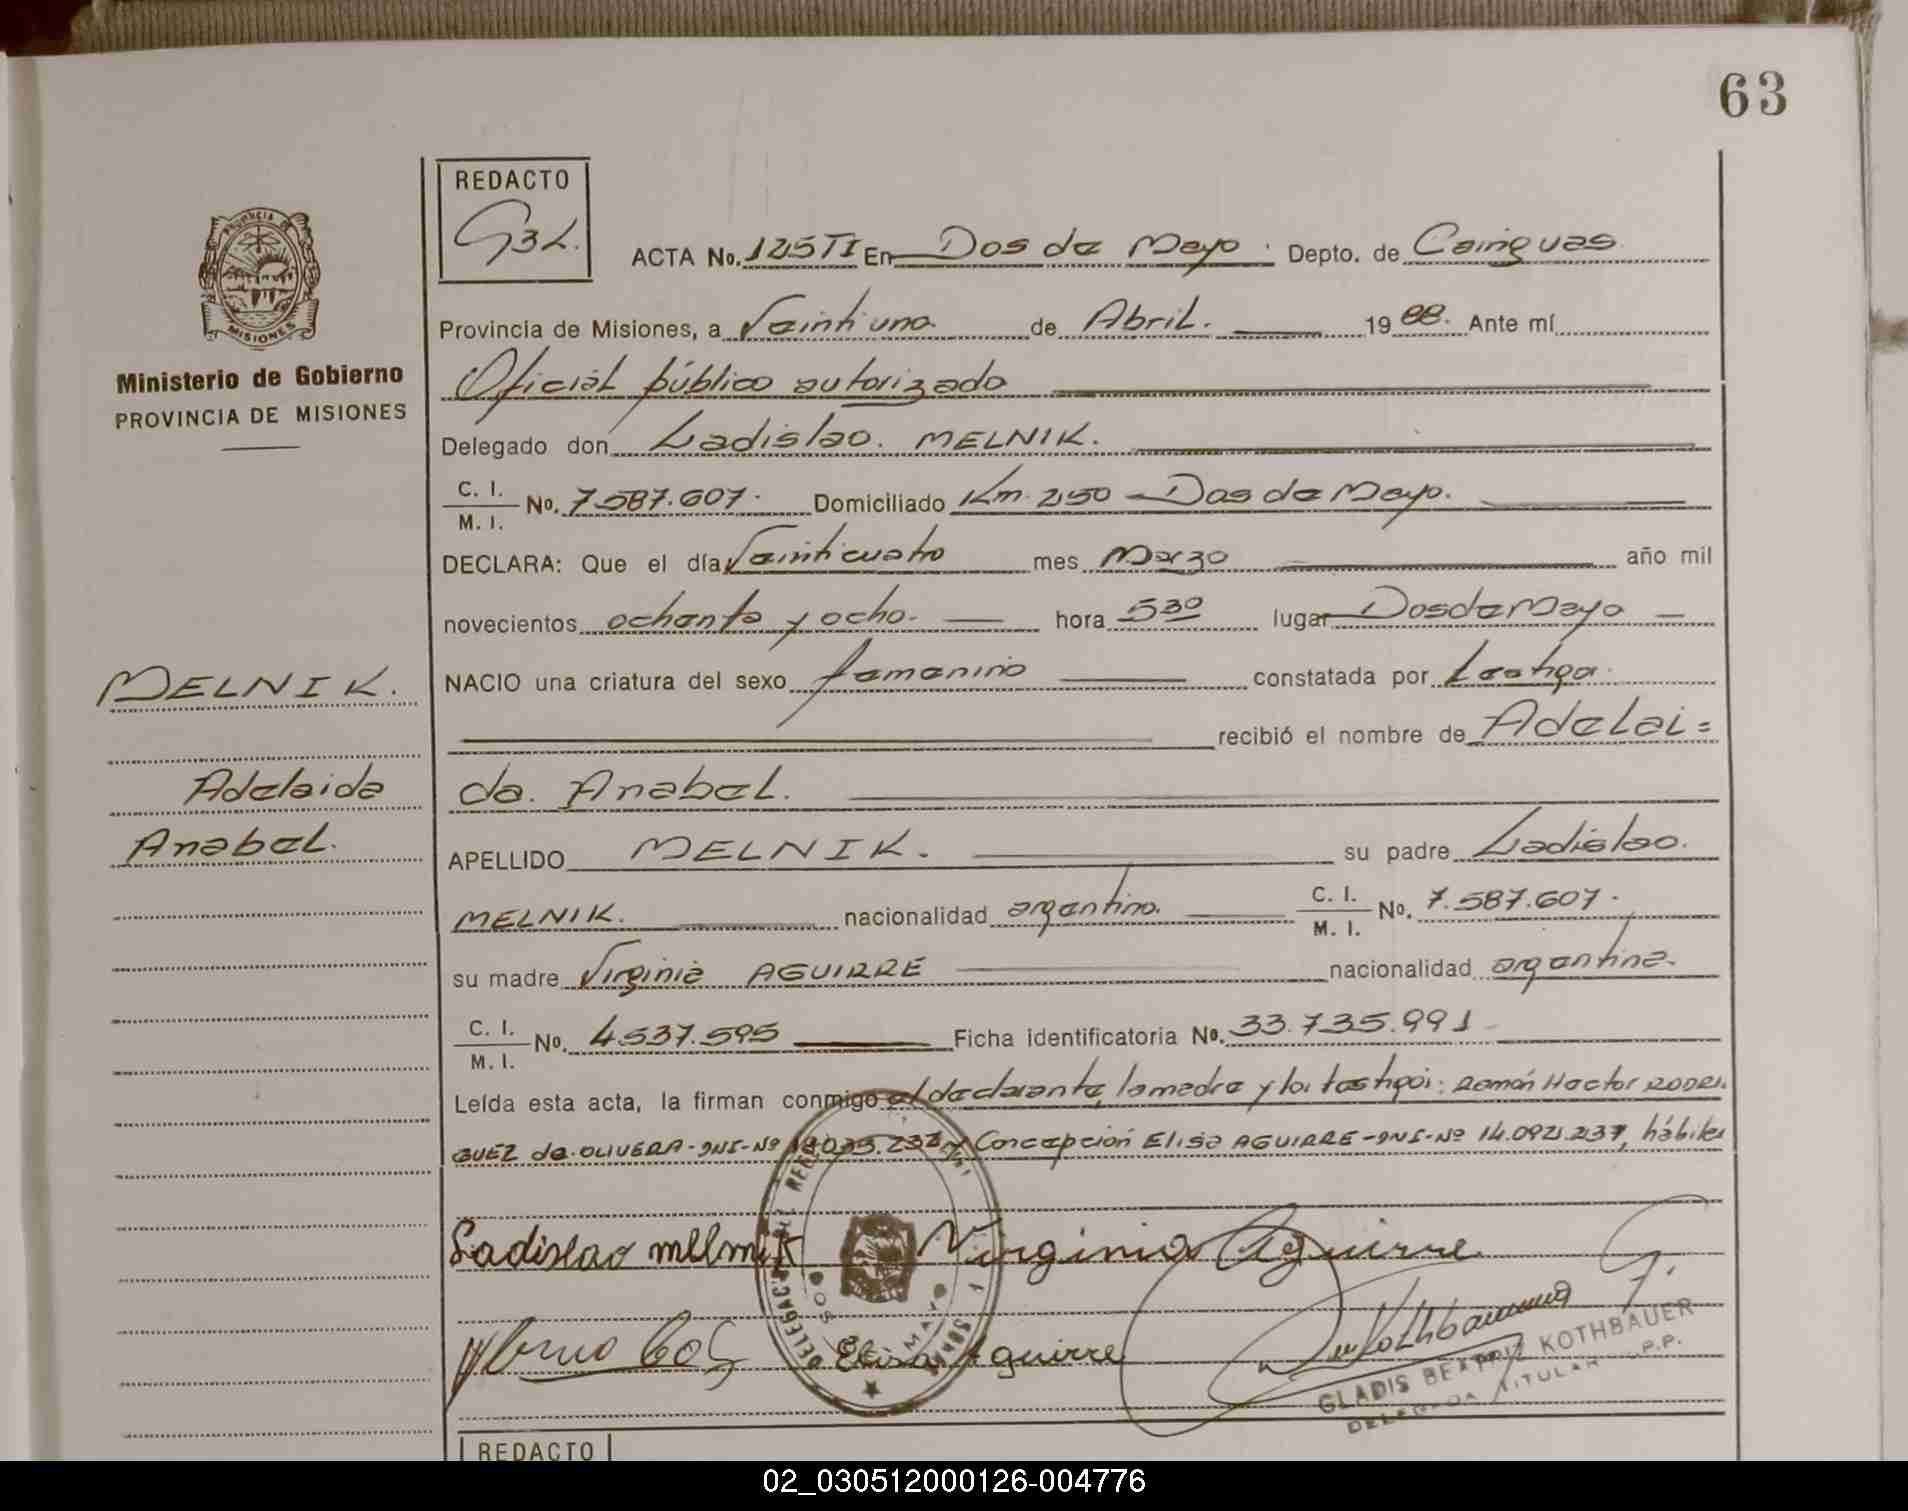 63
REDACTO
G3L.
ACTA No. 125TI En Dos de Mayo. Depto. de Cainguas.
PROVINCIA DE
MISIONES
Ministerio de Gobierno
PROVINCIA DE MISIONES
Provincia de Misiones, a Veintiuno de Abril. 1988. Ante mí
Oficial público autorizado
Delegado don Ladislao. MELNIK.
C. I. / M. I. No. 7.587.607. Domiciliado Km. 250 - Dos de Mayo.
DECLARA: Que el día Veinticuatro mes Marzo año mil
novecientos ochenta y ocho. hora 5 30 lugar Dos de Mayo
MELNIK.
NACIO una criatura del sexo femenino constatada por testigo.
recibió el nombre de Adelai=
Adelaida
da. Anabel.
Anabel.
APELLIDO MELNIK. su padre Ladislao.
MELNIK. nacionalidad argentino. C. I. / M. I. No. 7.587.607.
su madre Virginia AGUIRRE nacionalidad argentina.
C. I. / M. I. No. 4.537.595 Ficha identificatoria No. 33.735.991
Leída esta acta, la firman conmigo el declarante, la madre y los testigos: Román Hector RODRI
GUEZ de OLIVERA-DNI-Nº y Concepción Elisa AGUIRRE-DNI-Nº 14.092.237, hábiles
Ladislao mellnik Virginia Aguirre
Elisa Aguirre Kothbauer
DOS MAYO
GLADIS BEATRIZ KOTHBAUER
DELEGADA TITULAR
REDACTO
02_030512000126-004776